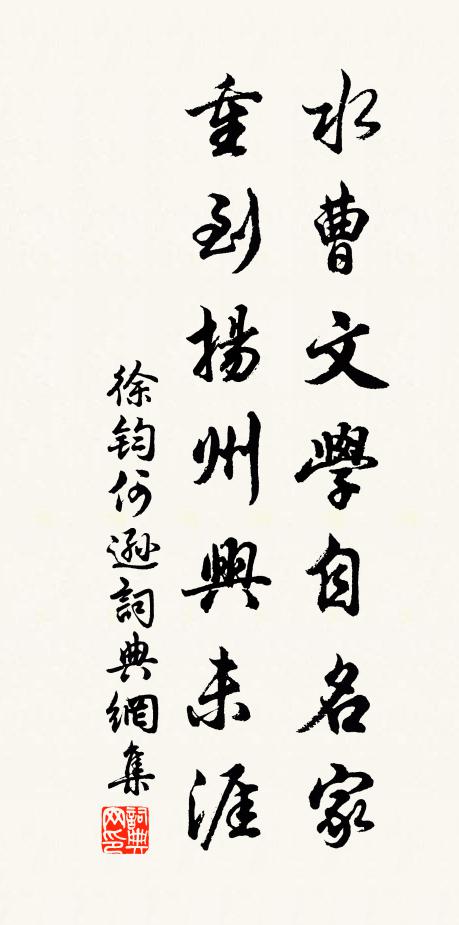 水曹文學自名家
重到揚州興未涯
徐鈞何遜詞典網集
詞典网印